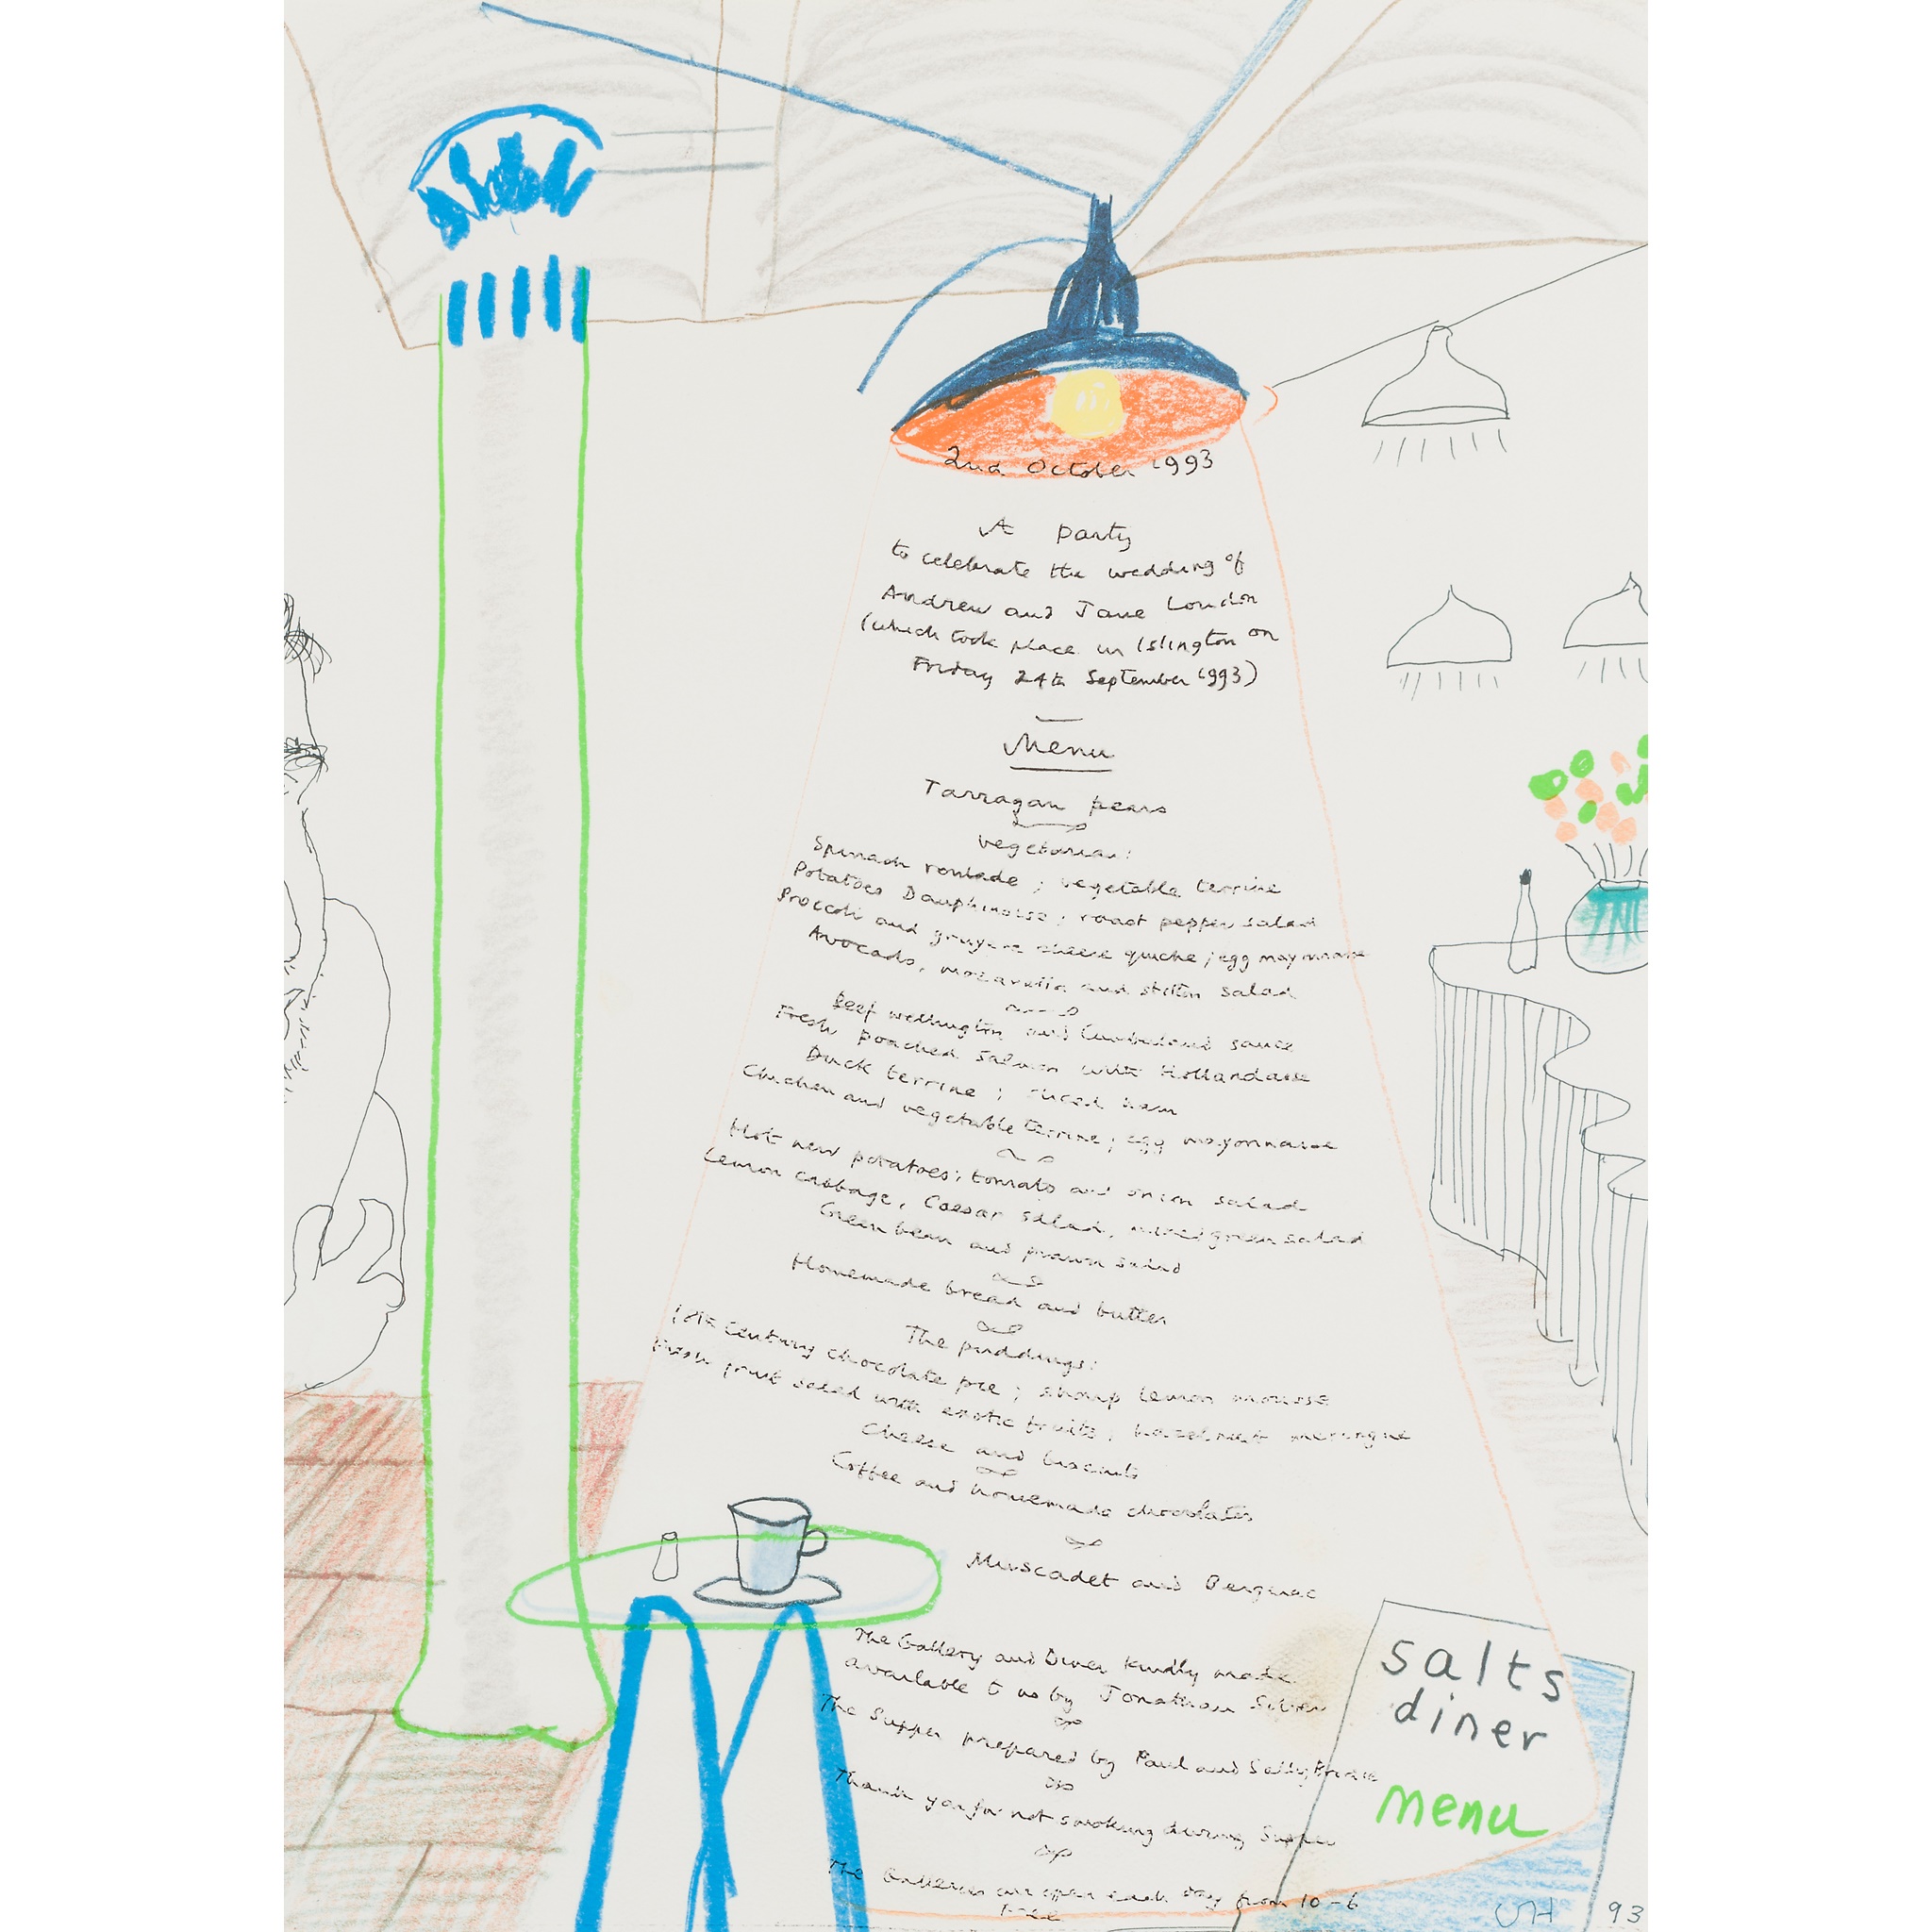 2nd October 1993
A party
to celebrate the wedding of
Andrew and Jane London
(which took place in Islington on
Friday 24th September 1993)
Menu
Tarragan pears
vegetarian:
Spinach roulade ; vegetable terrine
Potatoes Dauphinoise ; roast pepper salad
Broccoli and gruyere cheese quiche ; egg mayonnaise
Avocado, mozarella and stilton salad
Beef wellington and Cumberland sauce
Fresh poached salmon with Hollandaise
Duck terrine ; sliced ham
Chicken and vegetable terrine ; egg mayonnaise
Hot new potatoes ; tomato and onion salad
Lemon cabbage, Caesar salad, mixed green salad
Green bean and prawn salad
Homemade bread and butter
The puddings:
18th Century chocolate pie ; sharp lemon mousse
Fresh fruit salad with exotic fruits ; hazelnut meringue
Cheese and biscuits
Coffee and homemade chocolates
Muscadet and Bergerac
The Gallery and Diner kindly made
available to us by Jonathan Silver
The Supper prepared by Paul and Sally
Thank you for not smoking during Supper
The Galleries are open each day from 10-6
free
salts
diner
menu
DH 93